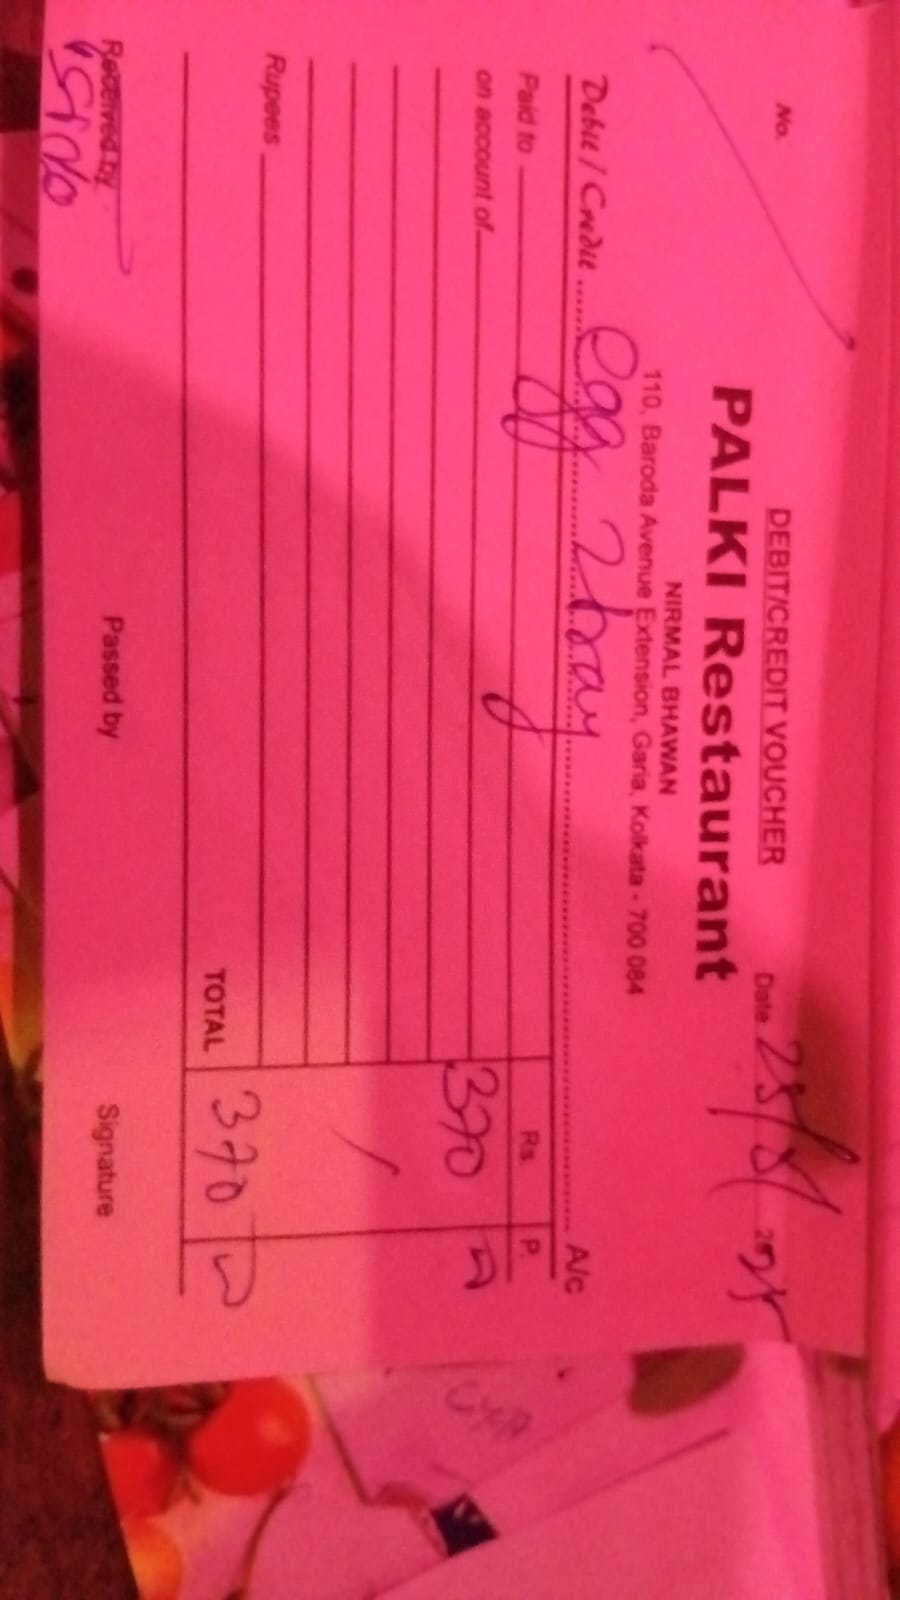 DEBIT/CREDIT VOUCHER
No.
Date 25/5/2025
PALKI Restaurant
NIRMAL BHAWAN
110, Baroda Avenue Extension, Garia, Kolkata - 700 084
Debit / Credit egg 2 tray A/c
Paid to Rs. P.
on account of 370
Rupees
TOTAL 370
Received by Passed by Signature